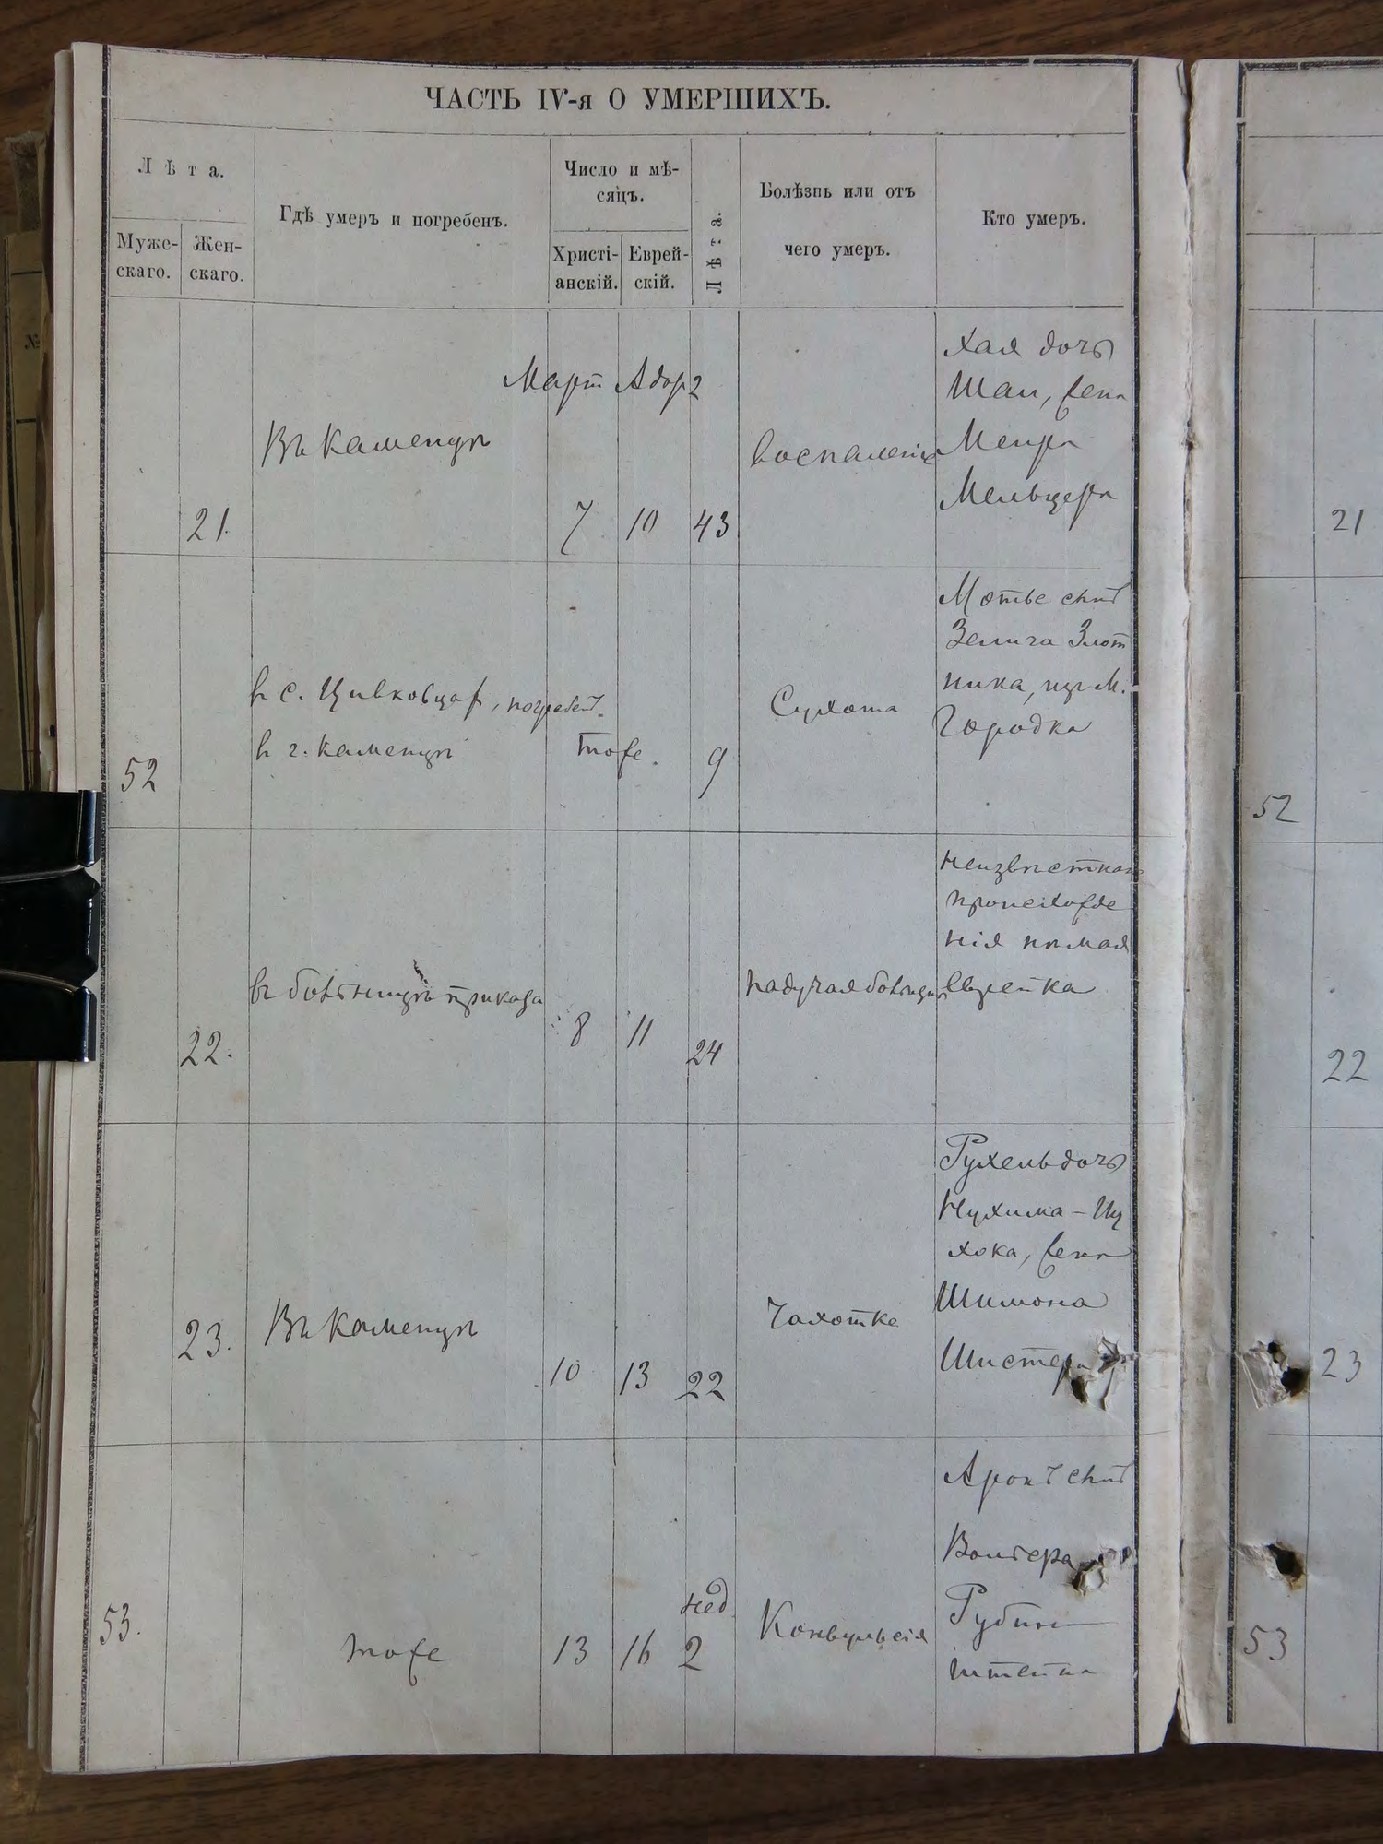 ЧАСТЬ IV-я О УМЕРШИХЪ.
Лѣта.
Муже-
скаго.
Жен-
скаго.
Гдѣ умеръ и погребенъ.
Число и мѣ-
сяцъ.
Христі-
анскій.
Еврей-
скій.
Лѣта.
Болѣзнь или отъ
чего умеръ.
Кто умеръ.
Март Адар 2
21.
Въ Каменцѣ
7
10
43
воспаленіе
Хая дочь
Шаи, жена
Меира
Мельцера
21
52
в с. Цивковцах, погребен.
в г. Каменцѣ
тоже.
9
Сухота
Мотье сынъ
Зелига Злот
ника, из М.
Городка
52
22.
в больницѣ приказа
8
11
24
падучая болѣзнь
неизвѣстнаго
происхожде
нія нѣмая
еврейка
22
23.
Въ Каменцѣ
10
13
22
Чахотке
Рухель дочь
Нухима-Иц
хока, жена
Шимона
Шистера
23
53.
тоже
13
16
нед.
2
Конвульсія
Аронъ сынъ
Рубин
штейна
53